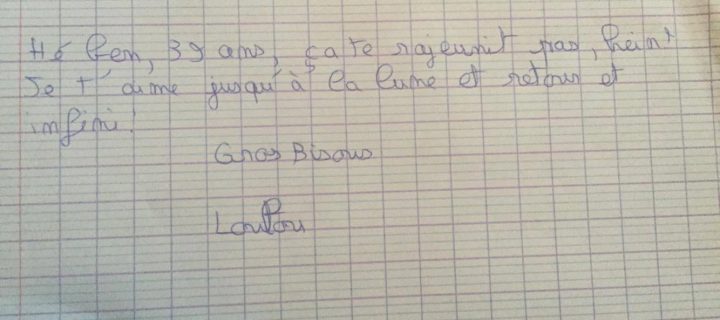 Hé ben, 39 ans, ça te rajeunit pas, hein!
Je t'aime jusqu'à la lune et retour et
infini!
Gros Bisous
Loulou